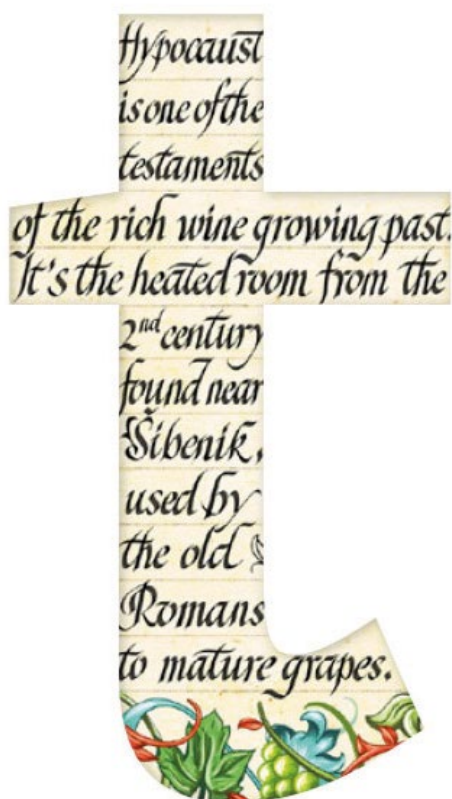 Hypocaust
is one of the
testaments
of the rich wine growing past.
It's the heated room from the
2nd century
found near
Šibenik,
used by
the old
Romans
to mature grapes.